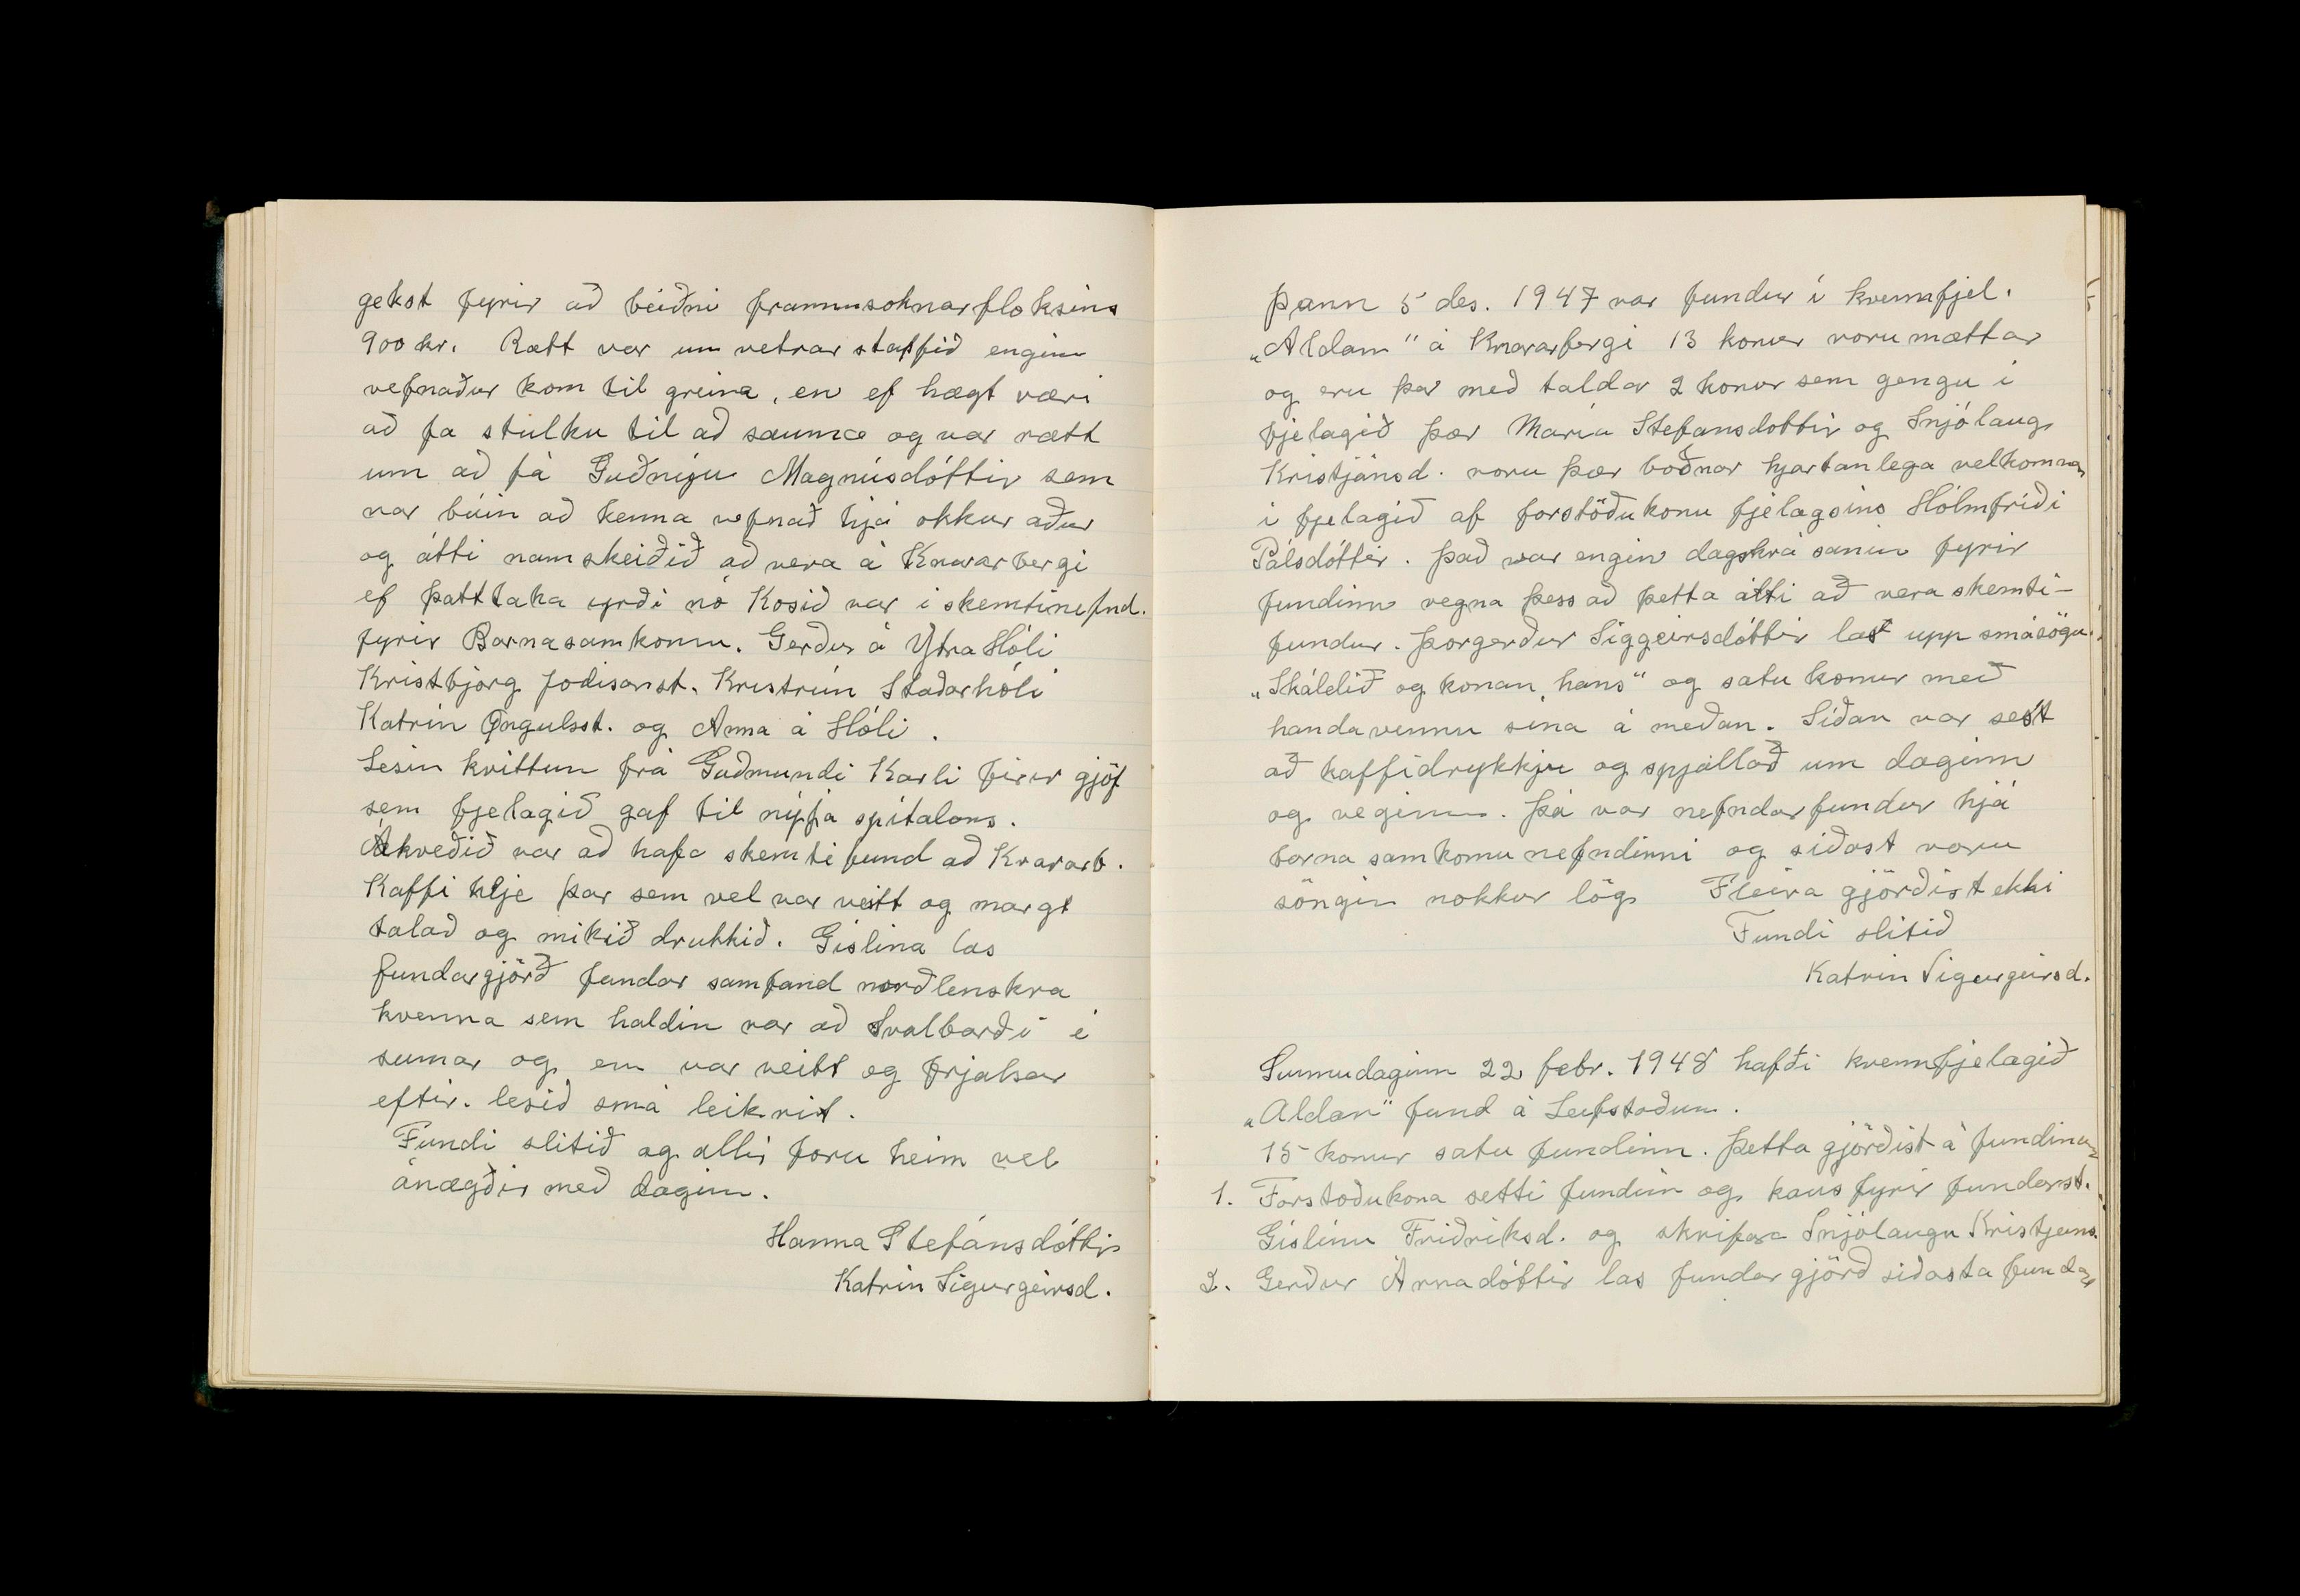 gekst fyrir að beiðni frammsoknarfloksins
900 kr. Rætt var um vetrar staffið engin
vefnaður kom til greina, en ef hægt væri
að fa stulku til að sauma og var rætt
um að fá Guðnýju Magnúsdóttir sem
var búin að kenna vefnað hjá okkur aður
og átti namskeiðið að vera á Knararbergi
ef þatttaka yrði nó Kosið var i skemtinefnd.
fyrir Barnasamkomu. Gerður á Ytra Hóli
Kristbjörg Jódisarst. Kristrún Staðarhóli
Katrin Öngulsst. og Anna á Hóli.
Lesin kvittun frá Guðmundi Karli firir gjöf
sem fjelagið gaf til nýja spitalans.
Ákveðið var að hafa skemtifund að Knararb.
Kaffi hlje þar sem vel var veitt og margt
talað og mikið drukkið. Gislina las
fundargjörð fundar samband norðlenskra
kvenna sem haldin var að Svalbarði i
sumar og en var veitt og frjalsar
eftir. lesið smá leikrit.
Fundi slitið og allir foru heim vel
ánægðir með dagin.
Hanna Stefánsdóttir
Katrin Sigurgeirsd.
Þann 5 des. 1947 var fundur í kvennfjel.
„Aldan" á Knararbergi 13 konur voru mættar
og eru þar með taldar 2 konur sem gengu i
fjelagið þær Maria Stefansdottir og Snjólaug
Kristjánsd. voru þær boðnar hjartanlega velkomnar
i fjelagið af forstöðukonu fjelagsins Hólmfriði
Pálsdóttir. Það var engin dagskrá samin fyrir
fundinn vegna þess að þetta átti að vera skemti-
fundur. Þorgerður Siggeirsdóttir las upp smásögu.
„Skáldið og konan hans" og satu konur með
handavinnu sina á meðan. Síðan var sest
að kaffidrykkju og spjallað um daginn
og veginn. Þá var nefndarfundur hjá
barnasamkomunefndinni og siðast voru
söngin nokkur lög. Fleira gjörðist ekki
Fundi slitið
Katrin Sigurgeirsd.
Sunnudaginn 22 febr. 1948 hafði kvennfjelagið
„Aldan" fund á Leifstoðum.
15 konur satu fundinn. Þetta gjörðist á fundinum
1. Forstoðukona setti fundin og kaus fyrir fundarst.
Gislinu Friðriksd. og skrifara Snjólaugu Kristjans.
2. Gerður Árnadóttir las fundargjörð siðasta fundar